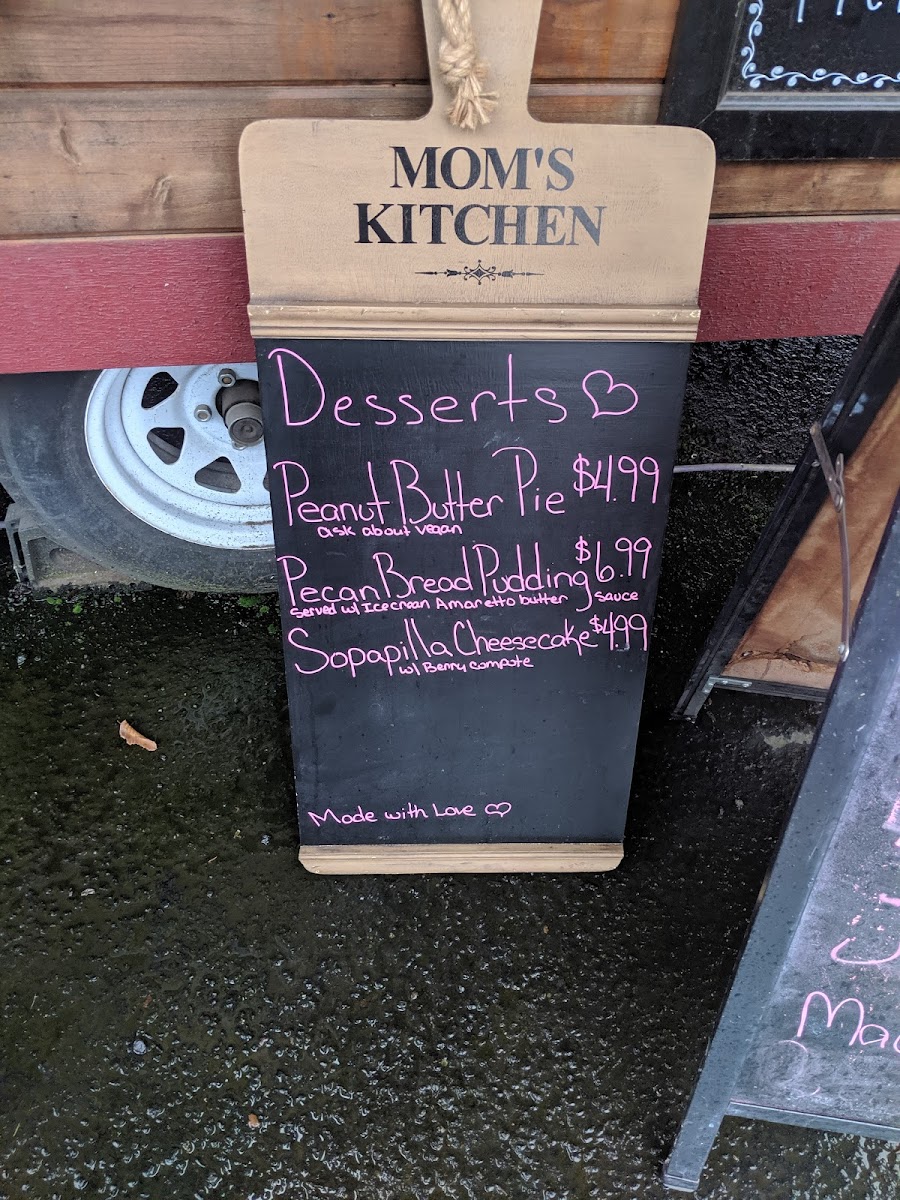 MOM'S
KITCHEN
Desserts
Peanut Butter Pie $4.99
ask about vegan
Pecan Bread Pudding $6.99
served w/ Icecream Amaretto butter sauce
Sopapilla Cheesecake $4.99
w/ Berry compote
Made with Love
Mac